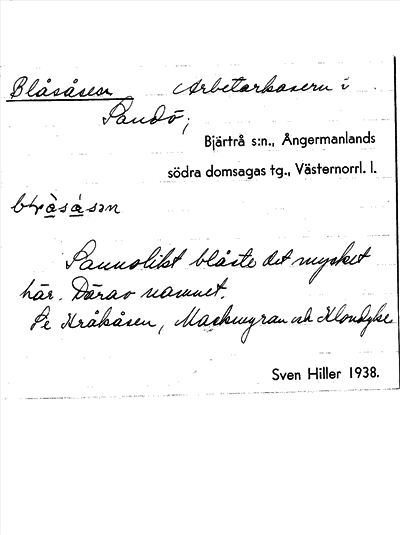 Blåsåsen Arbetarkasern i
Sandö;
Bjärtrå s:n., Ångermanlands
södra domsagas tg., Västernorrl. l.
Sannolikt blåste det mycket
här. Därav namnet.
Se Kråkåsen, Mackmyran och Klondyke
Sven Hiller 1938.